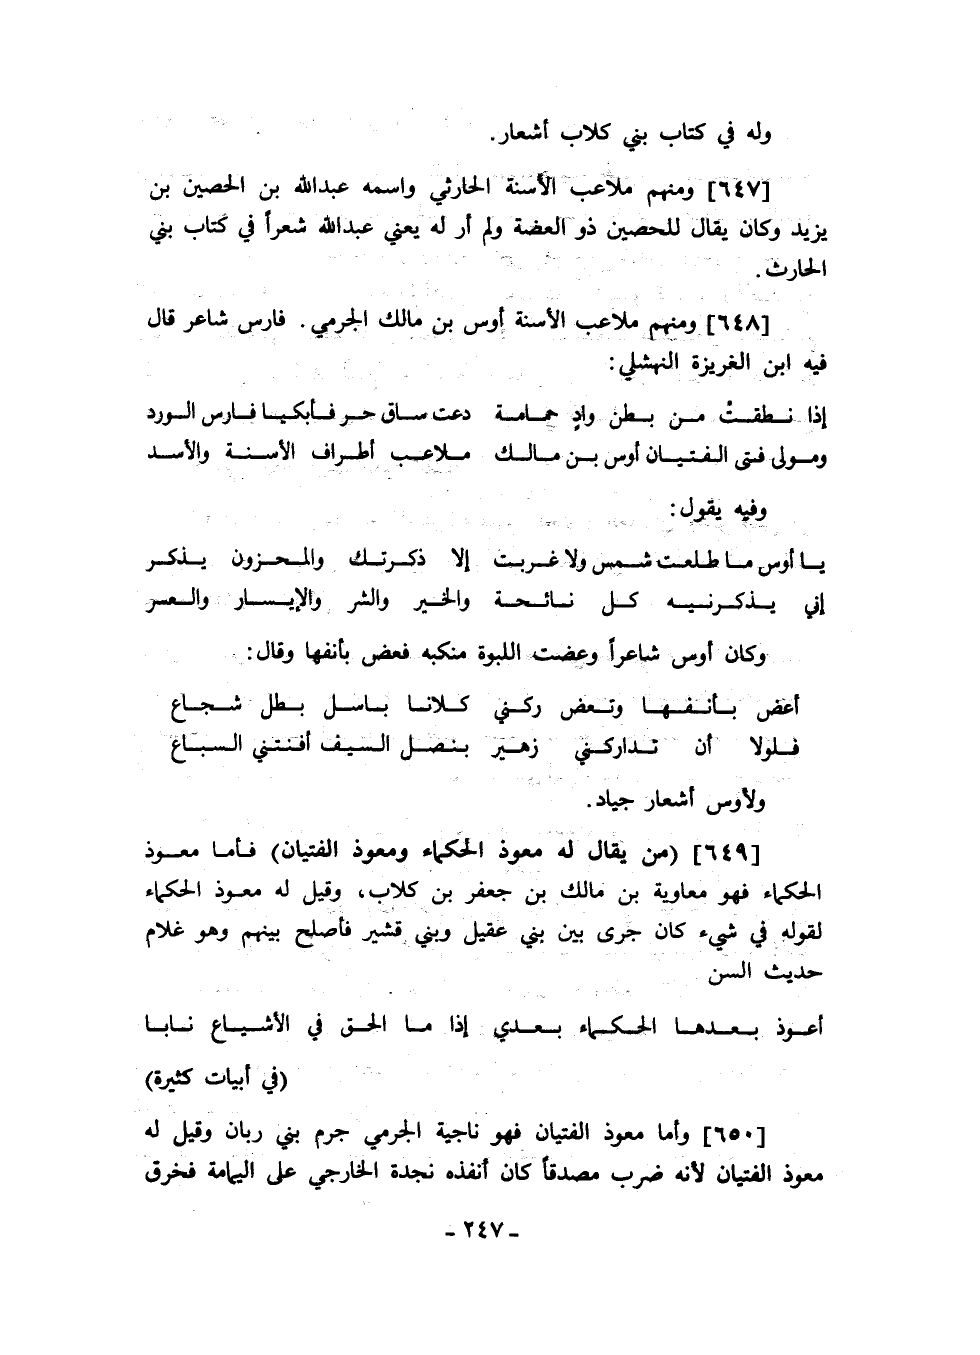 وله في كتاب بني كلاب أشعار.
[٦٤٧] ومنهم ملاعب الأسنة الحارثي واسمه عبدالله بن الحصين بن
يزيد وكان يقال للحصين ذو العضة ولم أر له يعني عبدالله شعراً في كتاب بني
الحارث.
[٦٤٨] ومنهم ملاعب الأسنة أوس بن مالك الجرمي. فارس شاعر قال
فيه ابن الغريزة النهشلي:
إذا نطقتْ من بطن وادٍ حمامة دعت ساق حر فأبكيا فارس الورد
ومولى فتى الفتيان أوس بن مالك ملاعب أطراف الأسنة والأسد
وفيه يقول:
يا أوس ما طلعت شمس ولا غربت إلا ذكرتك والمحزون يذكر
إني يذكرنيه كل نائحة والخير والشر والإيسار والعسر
وكان أوس شاعراً وعضت اللبوة منكبه فعض بأنفها وقال:
أعض بأنفها وتعض ركني كلانا باسل بطل شجاع
فلولا أن تداركني زهير بنصل السيف أفنتني السباع
ولأوس أشعار جياد.
[٦٤٩] (من يقال له معوذ الحكماء ومعوذ الفتيان) فأما معوذ
الحكماء فهو معاوية بن مالك بن جعفر بن كلاب، وقيل له معوذ الحكماء
لقوله في شيء كان جرى بين بني عقيل وبني قشير فأصلح بينهم وهو غلام
حديث السن
أعوذ بعدها الحكماء بعدي إذا ما الحق في الأشياع نابا
(في أبيات كثيرة)
[٦٥٠] وأما معوذ الفتيان فهو ناجية الجرمي جرم بني ربان وقيل له
معوذ الفتيان لأنه ضرب مصدقاً كان أنفذه نجدة الخارجي على اليمامة فخرق
- ٢٤٧ -